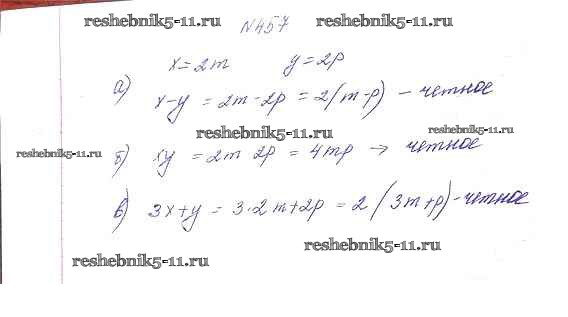 reshebnik5-11.ru
№457
reshebnik5-11.ru
x=2m y=2p
а) x-y = 2m-2p = 2(m-p) - четное
reshebnik5-11.ru
reshebnik5-11.ru
reshebnik5-11.ru
б) xy = 2m 2p = 4mp → четное
в) 3x+y = 3·2m+2p = 2(3m+p) - четное
reshebnik5-11.ru
reshebnik5-11.ru